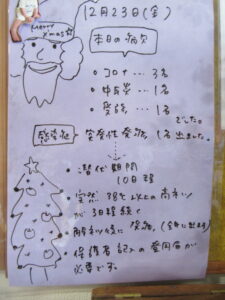 Merry
Xmas☆
12月23日(金)
本日の病欠
・コロナ…3名
・中耳炎…1名
・発熱…1名
でした。
感染性 突発性発疹 1名 出ました。
・潜伏期間
10日程
・突然 38℃以上の高ネツ
が 3日程続く
・解ネツ後に発疹 (全身に出ます)
・保護者記入の登園届が
必要です。